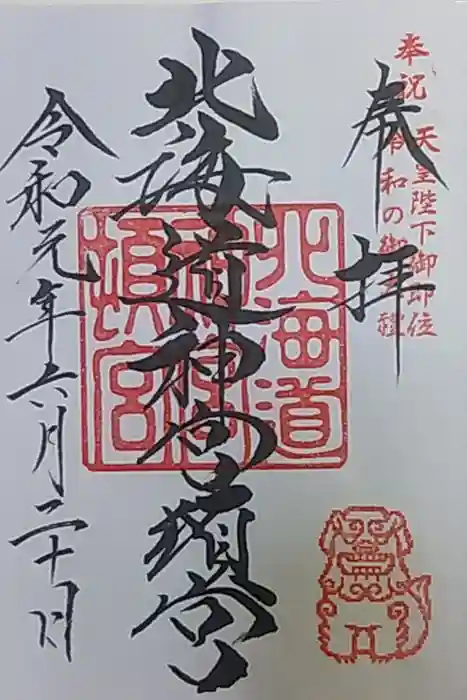 奉祝 天皇陛下御即位
令和の御
奉拝
北海道神宮頓宮
北海道
神宮
頓宮
令和元年六月二十日